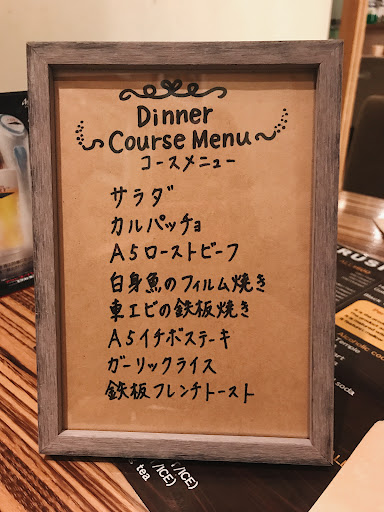 Dinner
Course Menu
コースメニュー
サラダ
カルパッチョ
A5ローストビーフ
白身魚のフィルム焼き
車エビの鉄板焼き
A5イチボステーキ
ガーリックライス
鉄板フレンチトースト
RUS
Alcoholic co
Temple
soda
/ICE)
/ICE)
tea